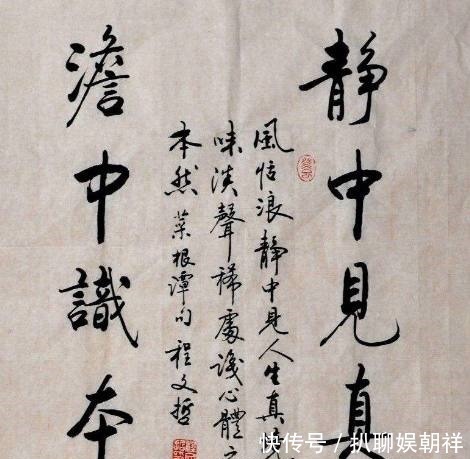 靜中見真
風恬浪靜中見人生真
味淡聲稀處識心體之
本然 菜根譚句 程文哲
澹中識本
快传号 / 扒聊娱朝祥